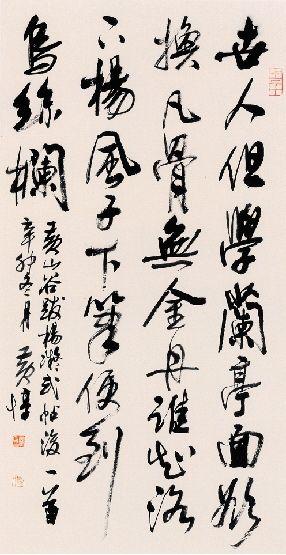 世人但學蘭亭面欲
換凡骨無金丹誰知洛
下楊風子下筆便到
烏絲欄
黃山谷跋楊凝式帖後一首
辛卯冬月 黃惇